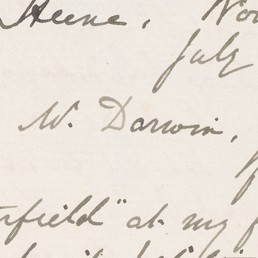 Heene, Wo
July
W. Darwin,
rfield" at my f